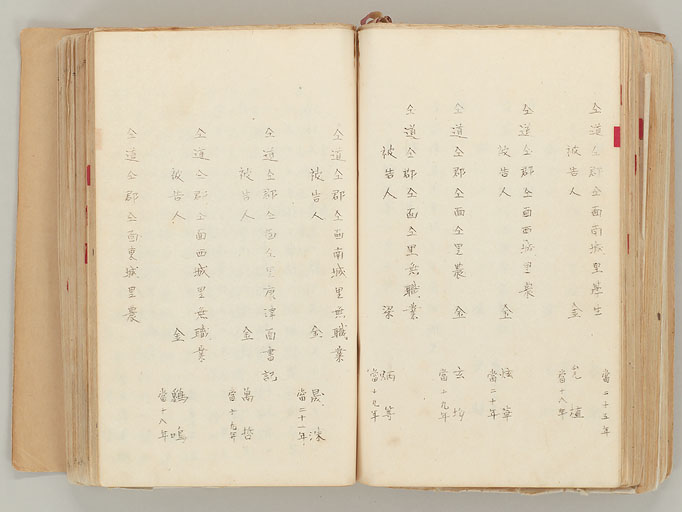 當二十五年
仝道仝郡仝面南城里學生
被告人 金
當十八年
仝道仝郡仝面西城里農
被告人 金
當二十年
仝道仝郡仝面仝里農 金 玄
當十九年
仝道仝郡仝面仝里無職業
被告人 梁 炳
當十九年
仝道仝郡仝面南城里無職業
被告人 金 晟
當二十一年
仝道仝郡仝面仝里 面書記
被告人 金 萬哲
當十九年
仝道仝郡仝面西城里無職業
被告人 金 鶴鳴
當十八年
仝道仝郡仝面東城里農